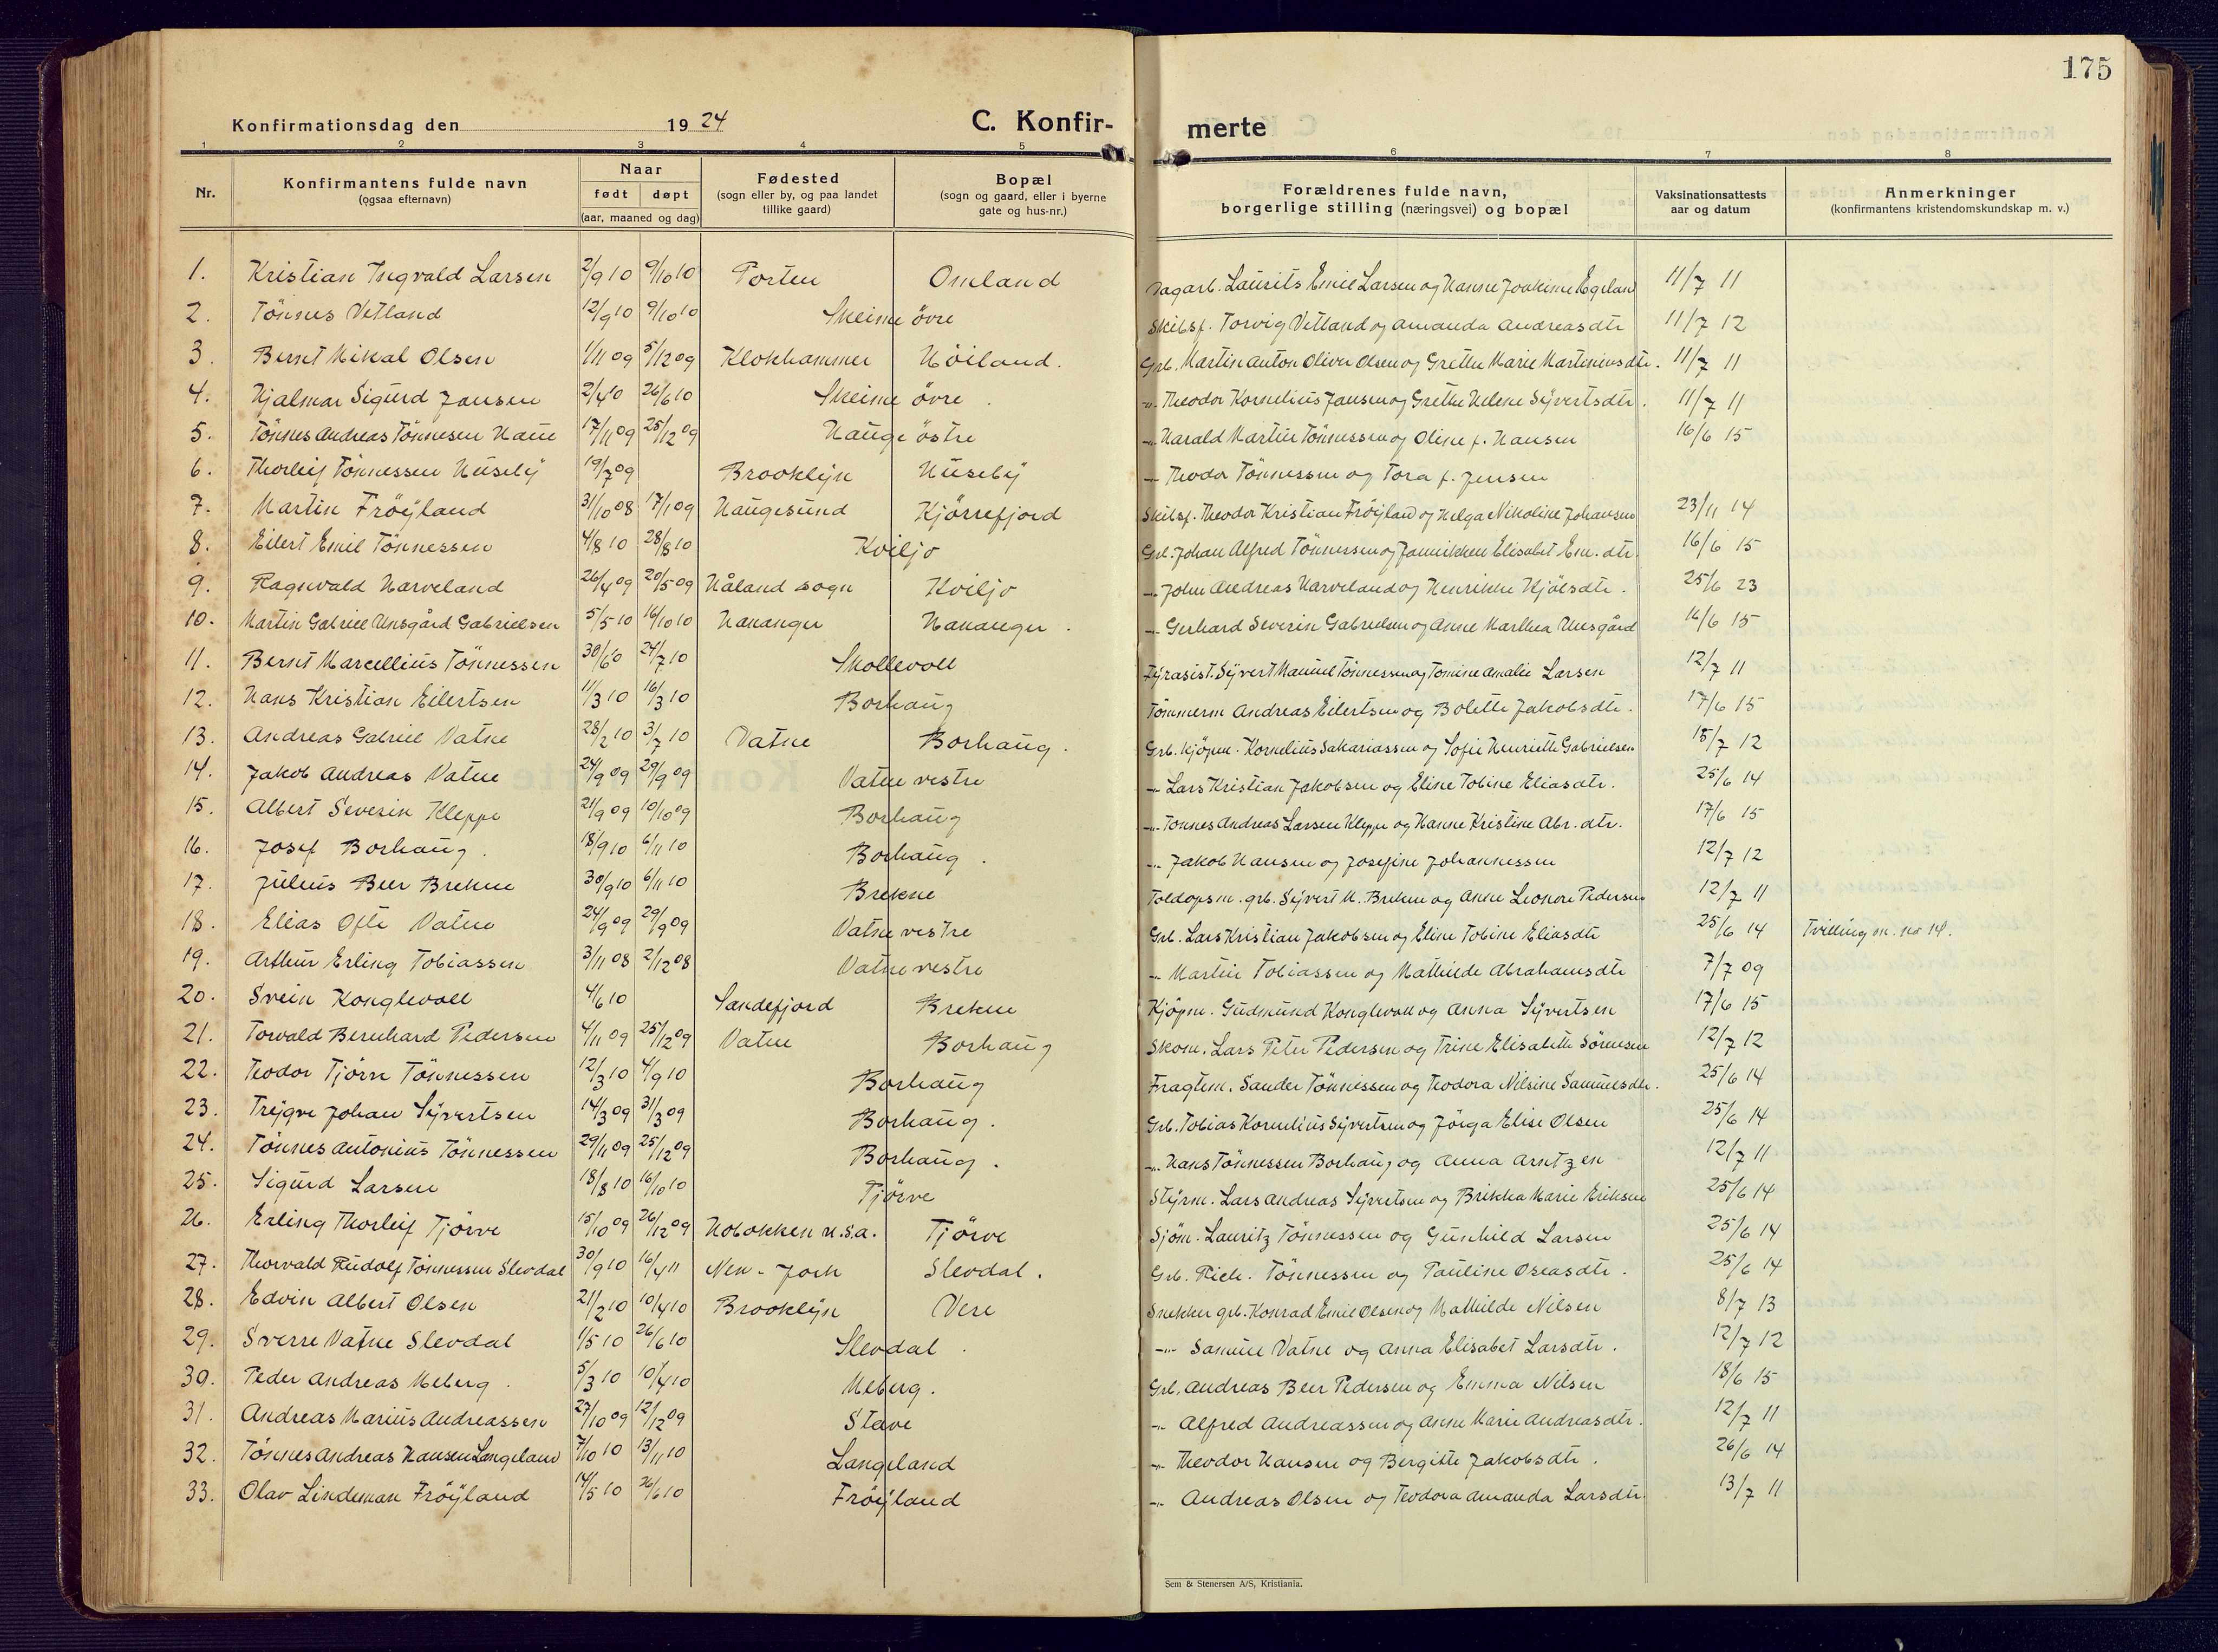 175
Konfirmationsdag den 19 24 C. Konfir- merte
1 2 3 4 5 6 7 8
Nr. Konfirmantens fulde navn (ogsaa efternavn) Naar født døpt (aar, maaned og dag) Fødested (sogn eller by, og paa landet tillike gaard) Bopæl (sogn og gaard, eller i byerne gate og hus-nr.) Forældrenes fulde navn, borgerlige stilling (næringsvei) og bopæl Vaksinationsattests aar og datum Anmerkninger (konfirmantens kristendomskundskap m. v.)
1. Kristian Ingvald Larsen 2/9 10 9/10 10 Porten Omland Dagarb. Laurits Emil Larsen og Hanne Joakime Egeland 11/7 11
2. Tönnes Vetland 12/9 10 9/10 10 Skeime övre Skibsf. Torvig Vetland og Amanda Andreasdtr 11/7 12
3. Bernt Mikal Olsen 1/11 09 5/12 09 Klokhammer Höiland. Grb. Martin Anton Oliver Olsen og Grethe Marie Martiniusdtr. 11/7 11
4. Hjalmar Sigurd Jansen 2/4 10 26/6 10 Skeime övre . -"- Theodor Kornelius Jansen og Grethe Helene Sÿvertsdtr. 11/7 11
5. Tönnes Andreas Tönnesen Haue 17/11 09 25/12 09 Hauge östre -"- Harald Martin Tönnessen og Oline f. Hansen 16/6 15
6. Thorleif Tönnessen Husebÿ 19/7 09 Brooklÿn Husebÿ -"- Theodor Tönnessen og Tora f. Jensen
7. Martin Fröÿland 31/10 08 17/1 09 Haugesund Kjörrefjord Skibsf. Theodor Kristian Fröÿland og Helga Nikoline Johansen 23/11 14
8. Eilert Emil Tönnessen 4/8 10 28/8 10 Kviljo Grb. Johan Alfred Tönnessen og Jannikken Elisabet Em. dtr. 16/6 15
9. Ragnvald Harveland 26/4 09 20/5 09 Håland sogn Kviljo -"- John Andreas Harveland og Henrikke Kjölsdtr. 25/6 23
10. Martin Gabriel Unsgård Gabrielsen 5/5 10 16/10 10 Hananger Hananger . -"- Gerhard Severin Gabrielsen og Anne Marthea Unsgård 16/6 15
11. Bernt Marcellius Tönnessen 30/6 10 24/7 10 Skollevoll Fÿrasist. Sÿvert Manuel Tönnessen og Tomine Amalie Larsen 12/7 11
12. Hans Kristian Eilertsen 11/3 10 16/3 10 Borhaug Tömmerm Andreas Eilertsen og Bolette Jakobsdtr. 17/6 15
13. Andreas Gabriel Vatne 28/2 10 3/7 10 Vatne Borhaug. Grb. kjöpm. Kornelius Sakariassen og Sofie Henriette Gabrielsen 15/7 12
14. Jakob Andreas Vatne 24/9 09 29/9 09 Vatne vestre -"- Lars Kristian Jakobsen og Eline Tobine Eliasdtr. 25/6 14
15. Albert Severin Kleppe 21/9 09 10/10 09 Borhaug -"- Tönnes Andreas Larsen Kleppe og Hanne Kristine Abr. dtr. 17/6 15
16. Josef Borhaug. 18/9 10 6/11 10 Borhaug . -"- Jakob Hansen og Josefine Johannessen 12/7 12
17. Julius Beer Brekne 30/9 10 6/11 10 Brekne Toldopsm. grb. Sÿvert M. Brekne og Anne Leonore Pedersen 12/7 11
18. Elias Ofte Vatne 24/9 09 29/9 09 Vatne vestre Grb. Lars Kristian Jakobsen og Eline Tobine Eliasdtr 25/6 14 Tvilling m. no 14.
19. Arthur Erling Tobiassen 3/11 08 2/12 08 Vatne vestre -"- Martin Tobiassen og Mathilde Abrahamsdtr 7/7 09
20. Svein Konglevoll 4/6 10 Sandefjord Brekne Kjöpm. Gudmund Konglevoll og Anna Sÿvertsen 17/6 15
21. Torvald Bernhard Pedersen 4/11 09 25/12 09 Vatne Borhaug Skom. Lars Peter Pedersen og Trine Elisabeth Sörensen 12/7 12
22. Teodor Tjörn Tönnessen 12/3 10 4/9 10 Borhaug Fragtem. Sander Tönnessen og Teodora Nilsine Samuelsdtr. 25/6 14
23. Trÿgve Johan Sÿvertsen 14/3 09 31/3 09 Borhaug. Grb. Tobias Kornelius Sÿvertsen og Jörga Elise Olsen 25/6 14
24. Tönnes Antonius Tönnessen 29/11 09 25/12 09 Borhaug . -"- Hans Tönnessen Borhaug og Anna Arntzen 12/7 11
25. Sigurd Larsen 18/8 10 16/10 10 Tjörve Stÿrm. Lars Andreas Sÿvertsen og Brikka Marie Eriksen 25/6 14
26. Erling Thorleif Tjörve 15/10 09 26/12 09 Hobokken U.S.A. Tjörve Sjöm. Lauritz Tönnessen og Gunhild Larsen 25/6 14
27. Thorvald Rudolf Tönnessen Slevdal 30/9 10 16/4 11 New-York Slevdal. Grb. Rich. Tönnessen og Pauline Oseasdtr. 25/6 14
28. Edvin Albert Olsen 21/2 10 10/4 10 Brooklÿn Vere Snekker grb. Konrad Emil Olsen og Mathilde Nilsen 8/7 13
29. Sverre Vatne Slevdal 1/5 10 26/6 10 Slevdal . -"- Samuel Vatne og Anna Elisabet Larsdtr. 12/7 12
30. Peder Andreas Meberg . 5/3 10 10/4 10 Meberg. Grb. Andreas Beer Pedersen og Emma Nilsen 18/6 15
31. Andreas Marius Andreassen 27/10 09 12/12 09 Stave -"- Alfred Andreassen og Anne Marie Andreasdtr. 12/7 11
32. Tönnes Andreas Hansen Langeland 7/10 10 13/11 10 Langeland -"- Theodor Hansen og Bergitte Jakobsdtr. 26/6 14
33. Olav Lindeman Fröÿland 14/5 10 26/6 10 Fröÿland -"- Andreas Olsen og Teodora Amanda Larsdtr. 13/7 11
Sem & Stenersen A/S, Kristiania.